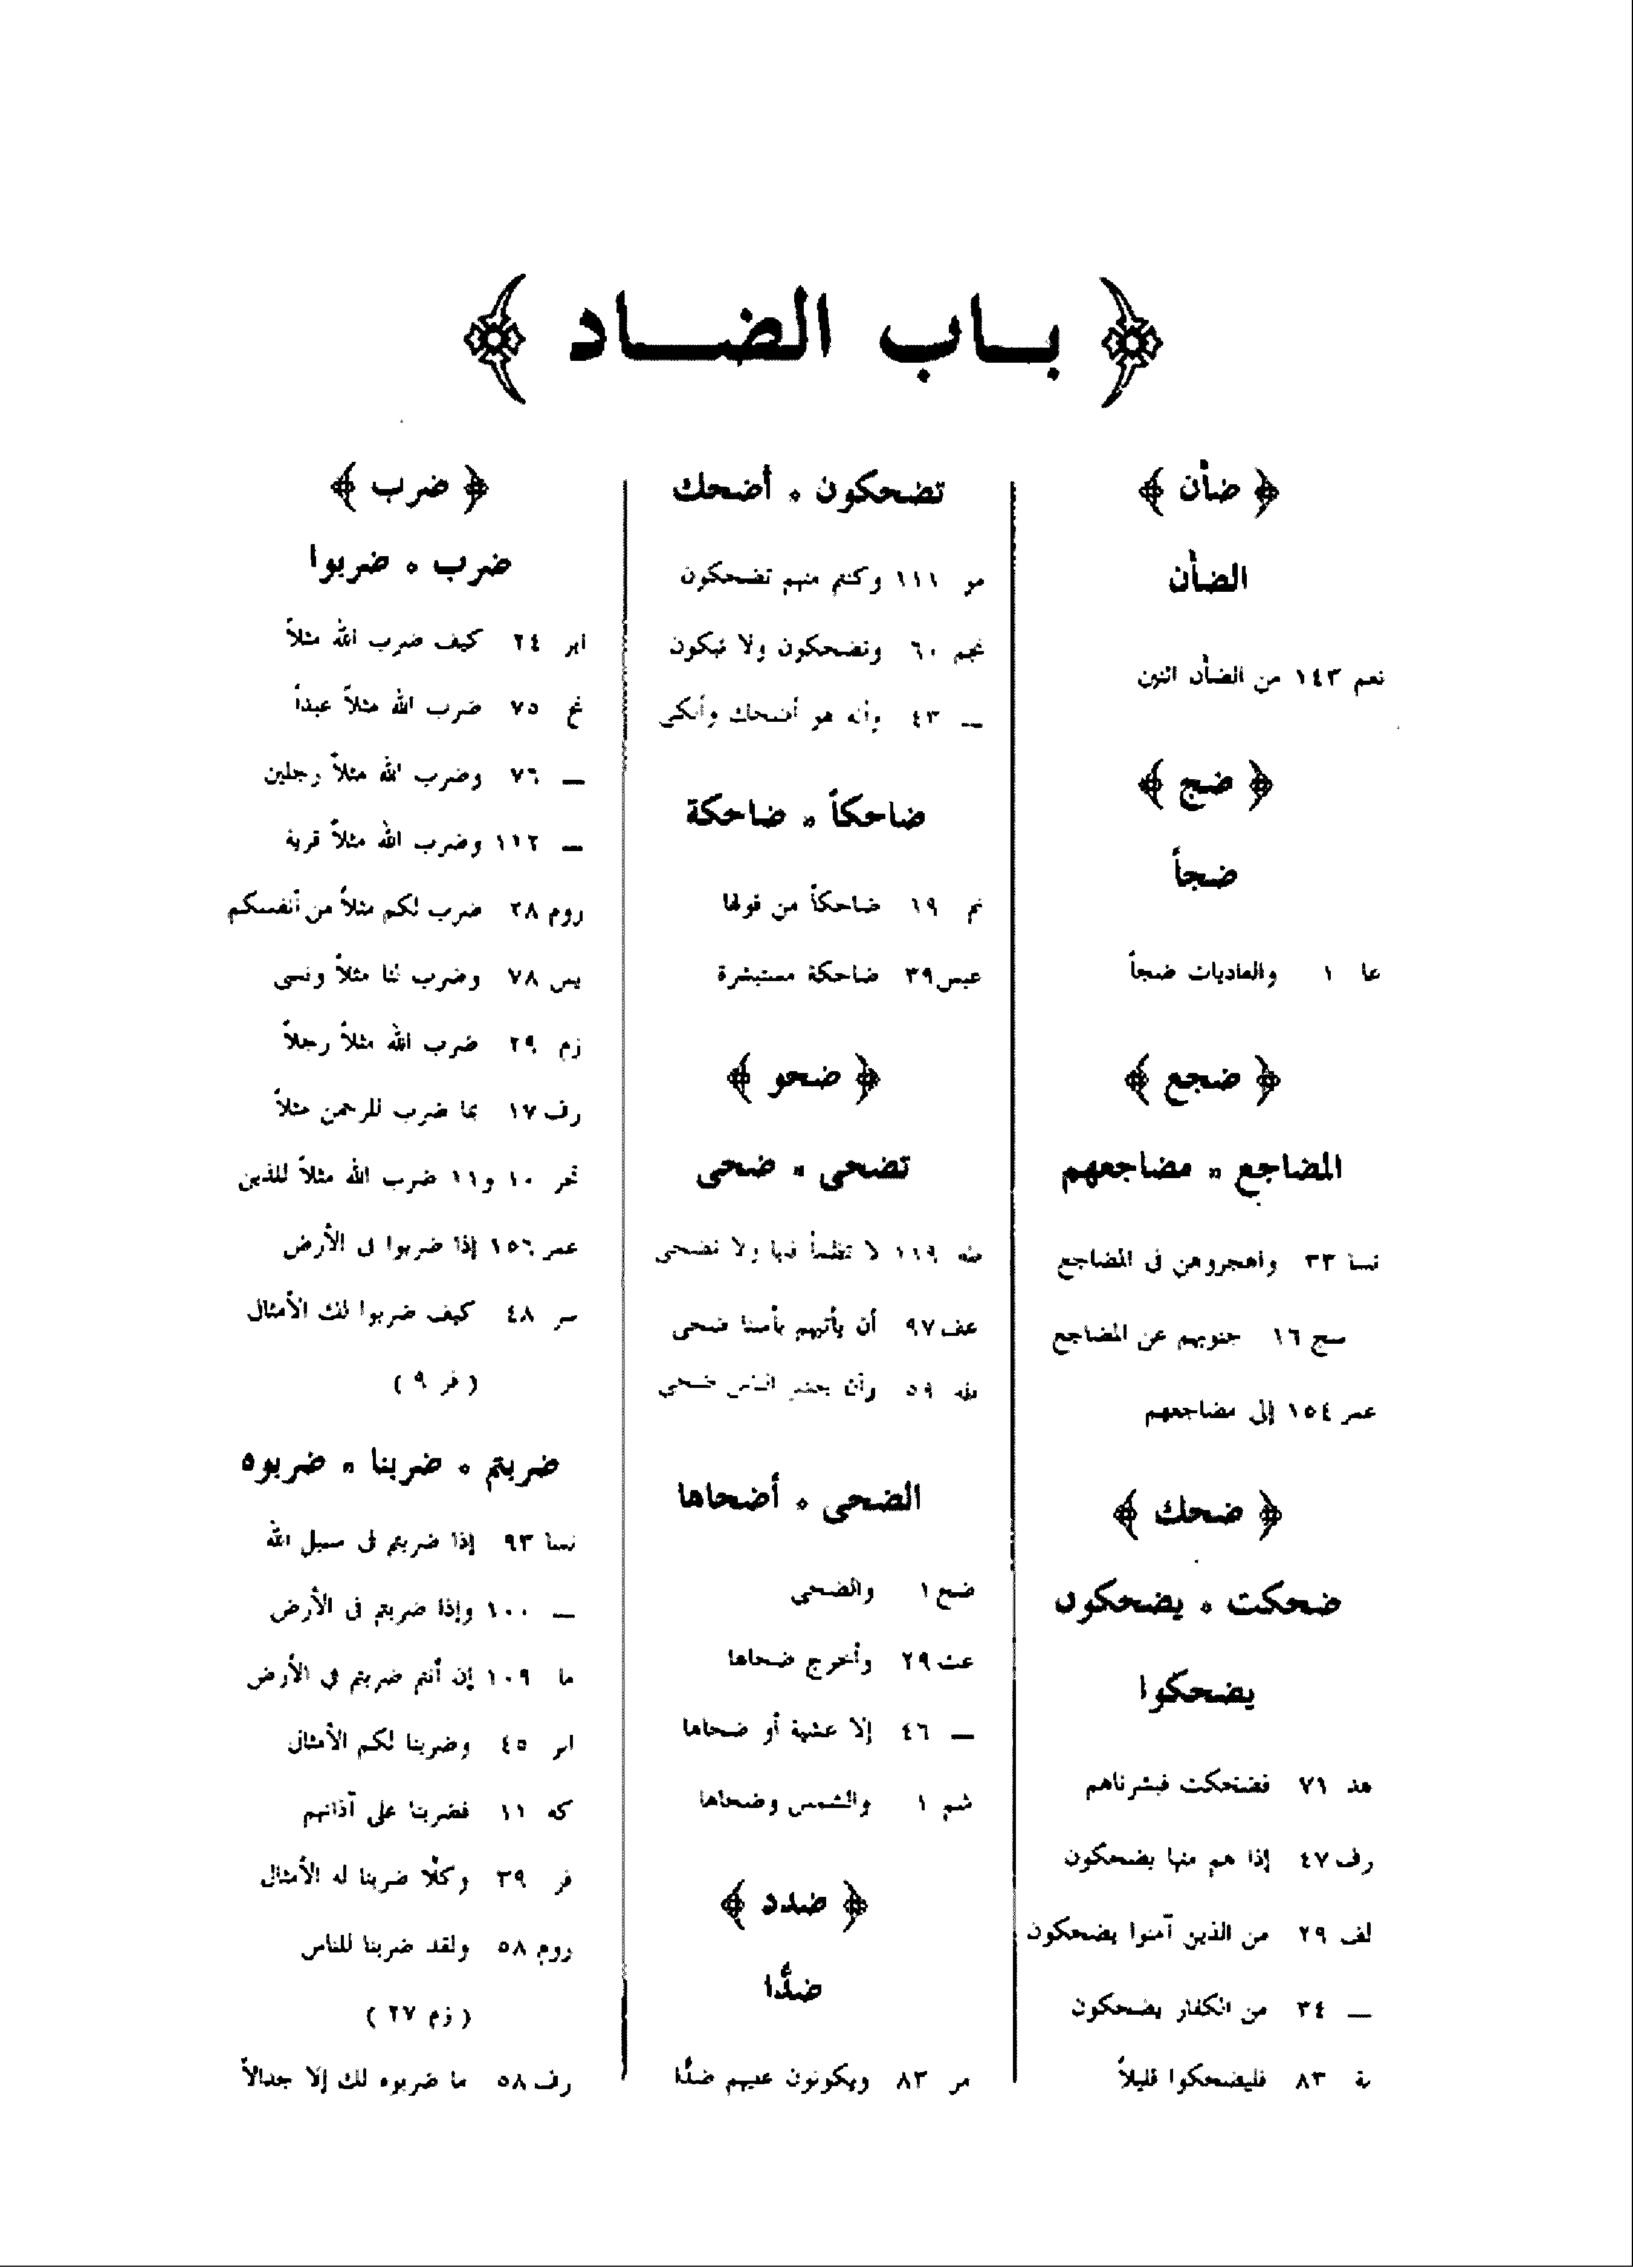 ﴿ بـاب الضـاد ﴾
﴿ ضأن ﴾
الضأن
نعم ١٤٣ من الضأن اثنين
﴿ ضج ﴾
ضجاً
عا ١ والعاديات ضجاً
﴿ ضجع ﴾
المضاجع * مضاجعهم
نسا ٣٣ واهجروهن فى المضاجع
سج ١٦ جنوبهم عن المضاجع
عمر ١٥٤ إلى مضاجعهم
﴿ ضحك ﴾
ضحكت * يضحكون
يضحكوا
هد ٧١ فضحكت فبشرناهم
رف ٤٧ إذا هم منها يضحكون
لف ٢٩ من الذين آمنوا يضحكون
— ٣٤ من الكفار يضحكون
بة ٨٣ فليضحكوا قليلاً
تضحكون * أضحك
مو ١١١ وكنتم منهم تضحكون
نجم ٦٠ وتضحكون ولا تبكون
— ٤٣ وأنه هو أضحك وأبكى
ضاحكاً * ضاحكة
نم ١٩ ضاحكاً من قولها
عبس ٣٩ ضاحكة مستبشرة
﴿ ضحو ﴾
تضحى * ضحى
طه ١١٩ لا تظمأ فيها ولا تضحى
عف ٩٧ أن يأتيهم بأسنا ضحى
طه ٥٩ وأن يحشر الناس ضحى
الضحى * أضحاها
ضح ١ والضحى
عت ٢٩ وأخرج ضحاها
— ٤٦ إلا عشية أو ضحاها
شم ١ والشمس وضحاها
﴿ ضدد ﴾
ضدًّا
مر ٨٣ ويكونون عليهم ضدًّا
﴿ ضرب ﴾
ضرب * ضربوا
ابر ٢٤ كيف ضرب الله مثلاً
نح ٧٥ ضرب الله مثلاً عبداً
— ٧٦ وضرب الله مثلاً رجلين
— ١١٢ وضرب الله مثلاً قرية
روم ٢٨ ضرب لكم مثلاً من أنفسكم
يس ٧٨ وضرب لنا مثلاً ونسى
زم ٢٩ ضرب الله مثلاً رجلاً
رف ١٧ بما ضرب للرحمن مثلاً
تحر ١٠ و١١ ضرب الله مثلاً للذين
عمر ١٥٦ إذا ضربوا فى الأرض
سر ٤٨ كيف ضربوا لك الأمثال
( فر ٩ )
ضربتم * ضربنا * ضربوه
نسا ٩٣ إذا ضربتم فى سبيل الله
— ١٠٠ وإذا ضربتم فى الأرض
ما ١٠٩ إن أنتم ضربتم فى الأرض
ابر ٤٥ وضربنا لكم الأمثال
كه ١١ فضربنا على آذانهم
فر ٣٩ وكلًّا ضربنا له الأمثال
روم ٥٨ ولقد ضربنا للناس
( زم ٢٧ )
رف ٥٨ ما ضربوه لك إلا جدالاً